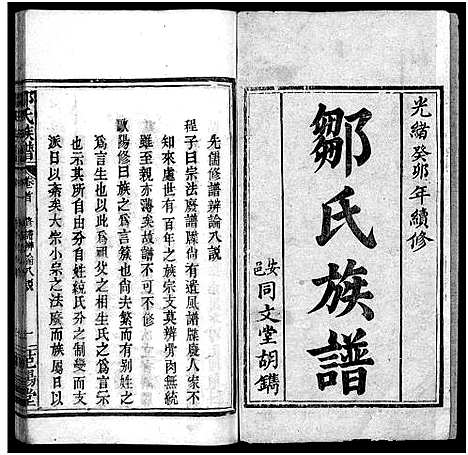 光緒癸卯年續修
鄒氏族譜
安邑同文堂胡鐫
先儒修譜辨論八說
程子曰宗法廢譜牒尚有遺風譜牒廢人家不
知來處世有百年之族宗支莫辨骨肉無統
雖至親亦薄矣故譜不可不修
歐陽修曰族之為言簇也向去繁而有別姓之
為言生也以此為祖父之相生氏之為言示
也示其所自出分自姓統氏分之制變而支
派日以紊矣大宗小宗之法廢而族屬日以
鄒氏族譜
卷首
修譜辨論八說
一